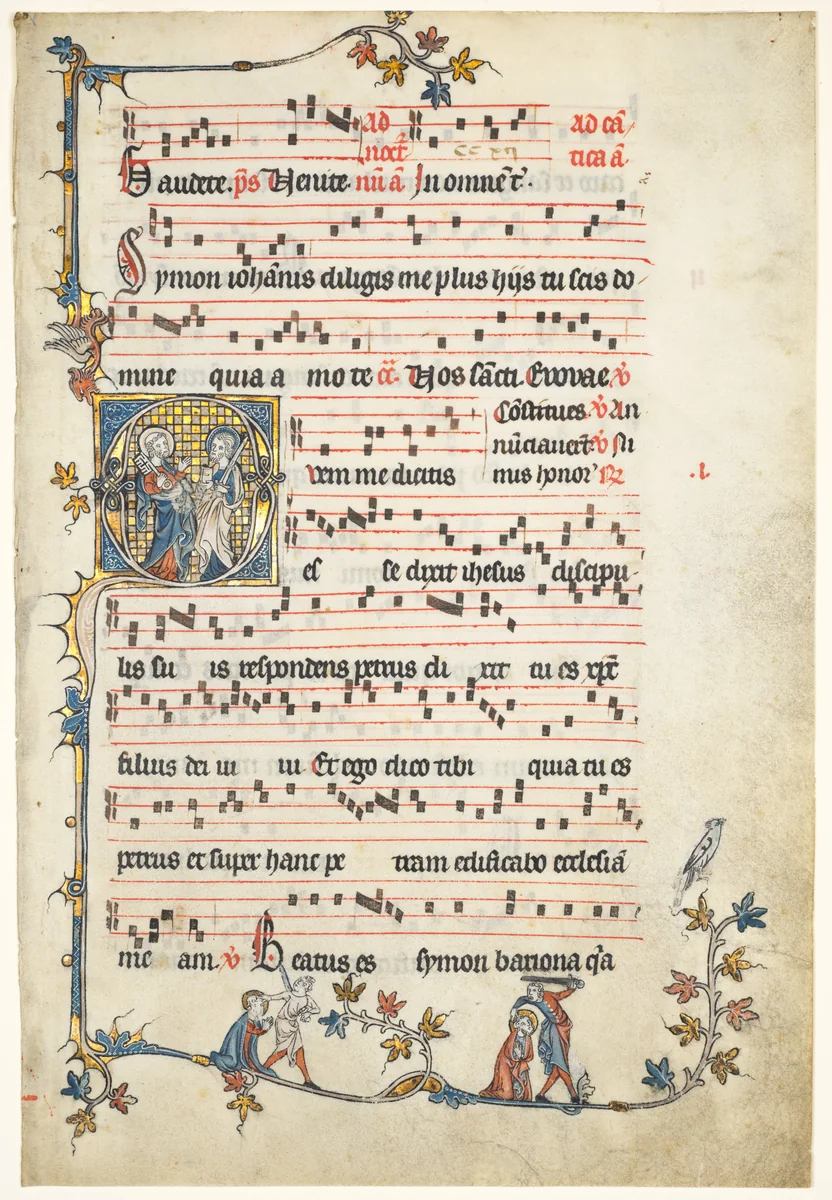 Ad Ad cā
noct̄ tica ā
Gaudete. p̄s Venite. nū ā In omnē t̄.
Symon iohānis diligis me plus hijs tu scis do
mine quia a mo te Vos sācti. Evovae v̄
Cōstitues v̄ An
nūciavert̄ v̄ Ni
Qvem me dicitis mus honor' R̄ .l.
es se dixit ihesus discipu
lis su is respondens petrus di xit tu es xp̄c
filius dei ui ui. Et ego dico tibi quia tu es
petrus et super hanc pe tram edificabo ecclesiā
me am. v̄ Beatus es symon bariona q̄a